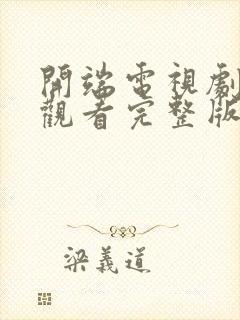 開端電視劇
觀看完整版
梁義道